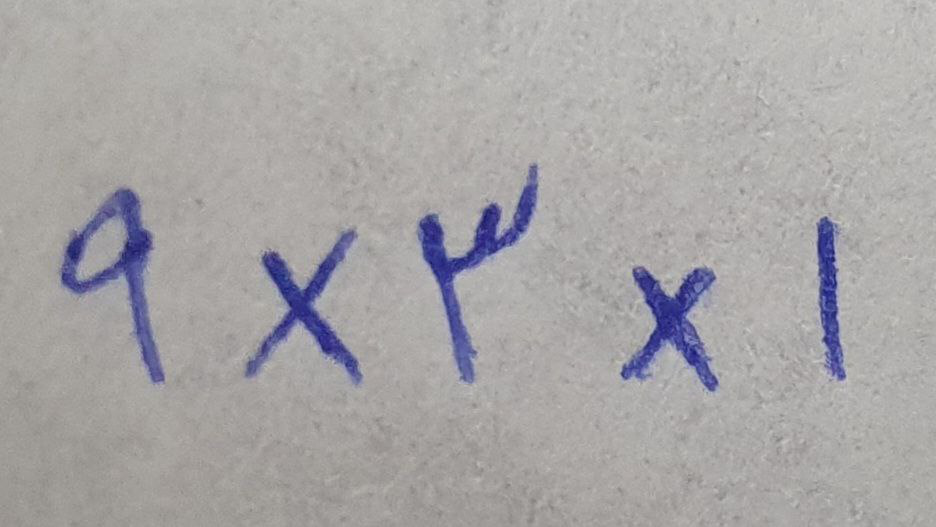 ۹ × ۳ × ۱